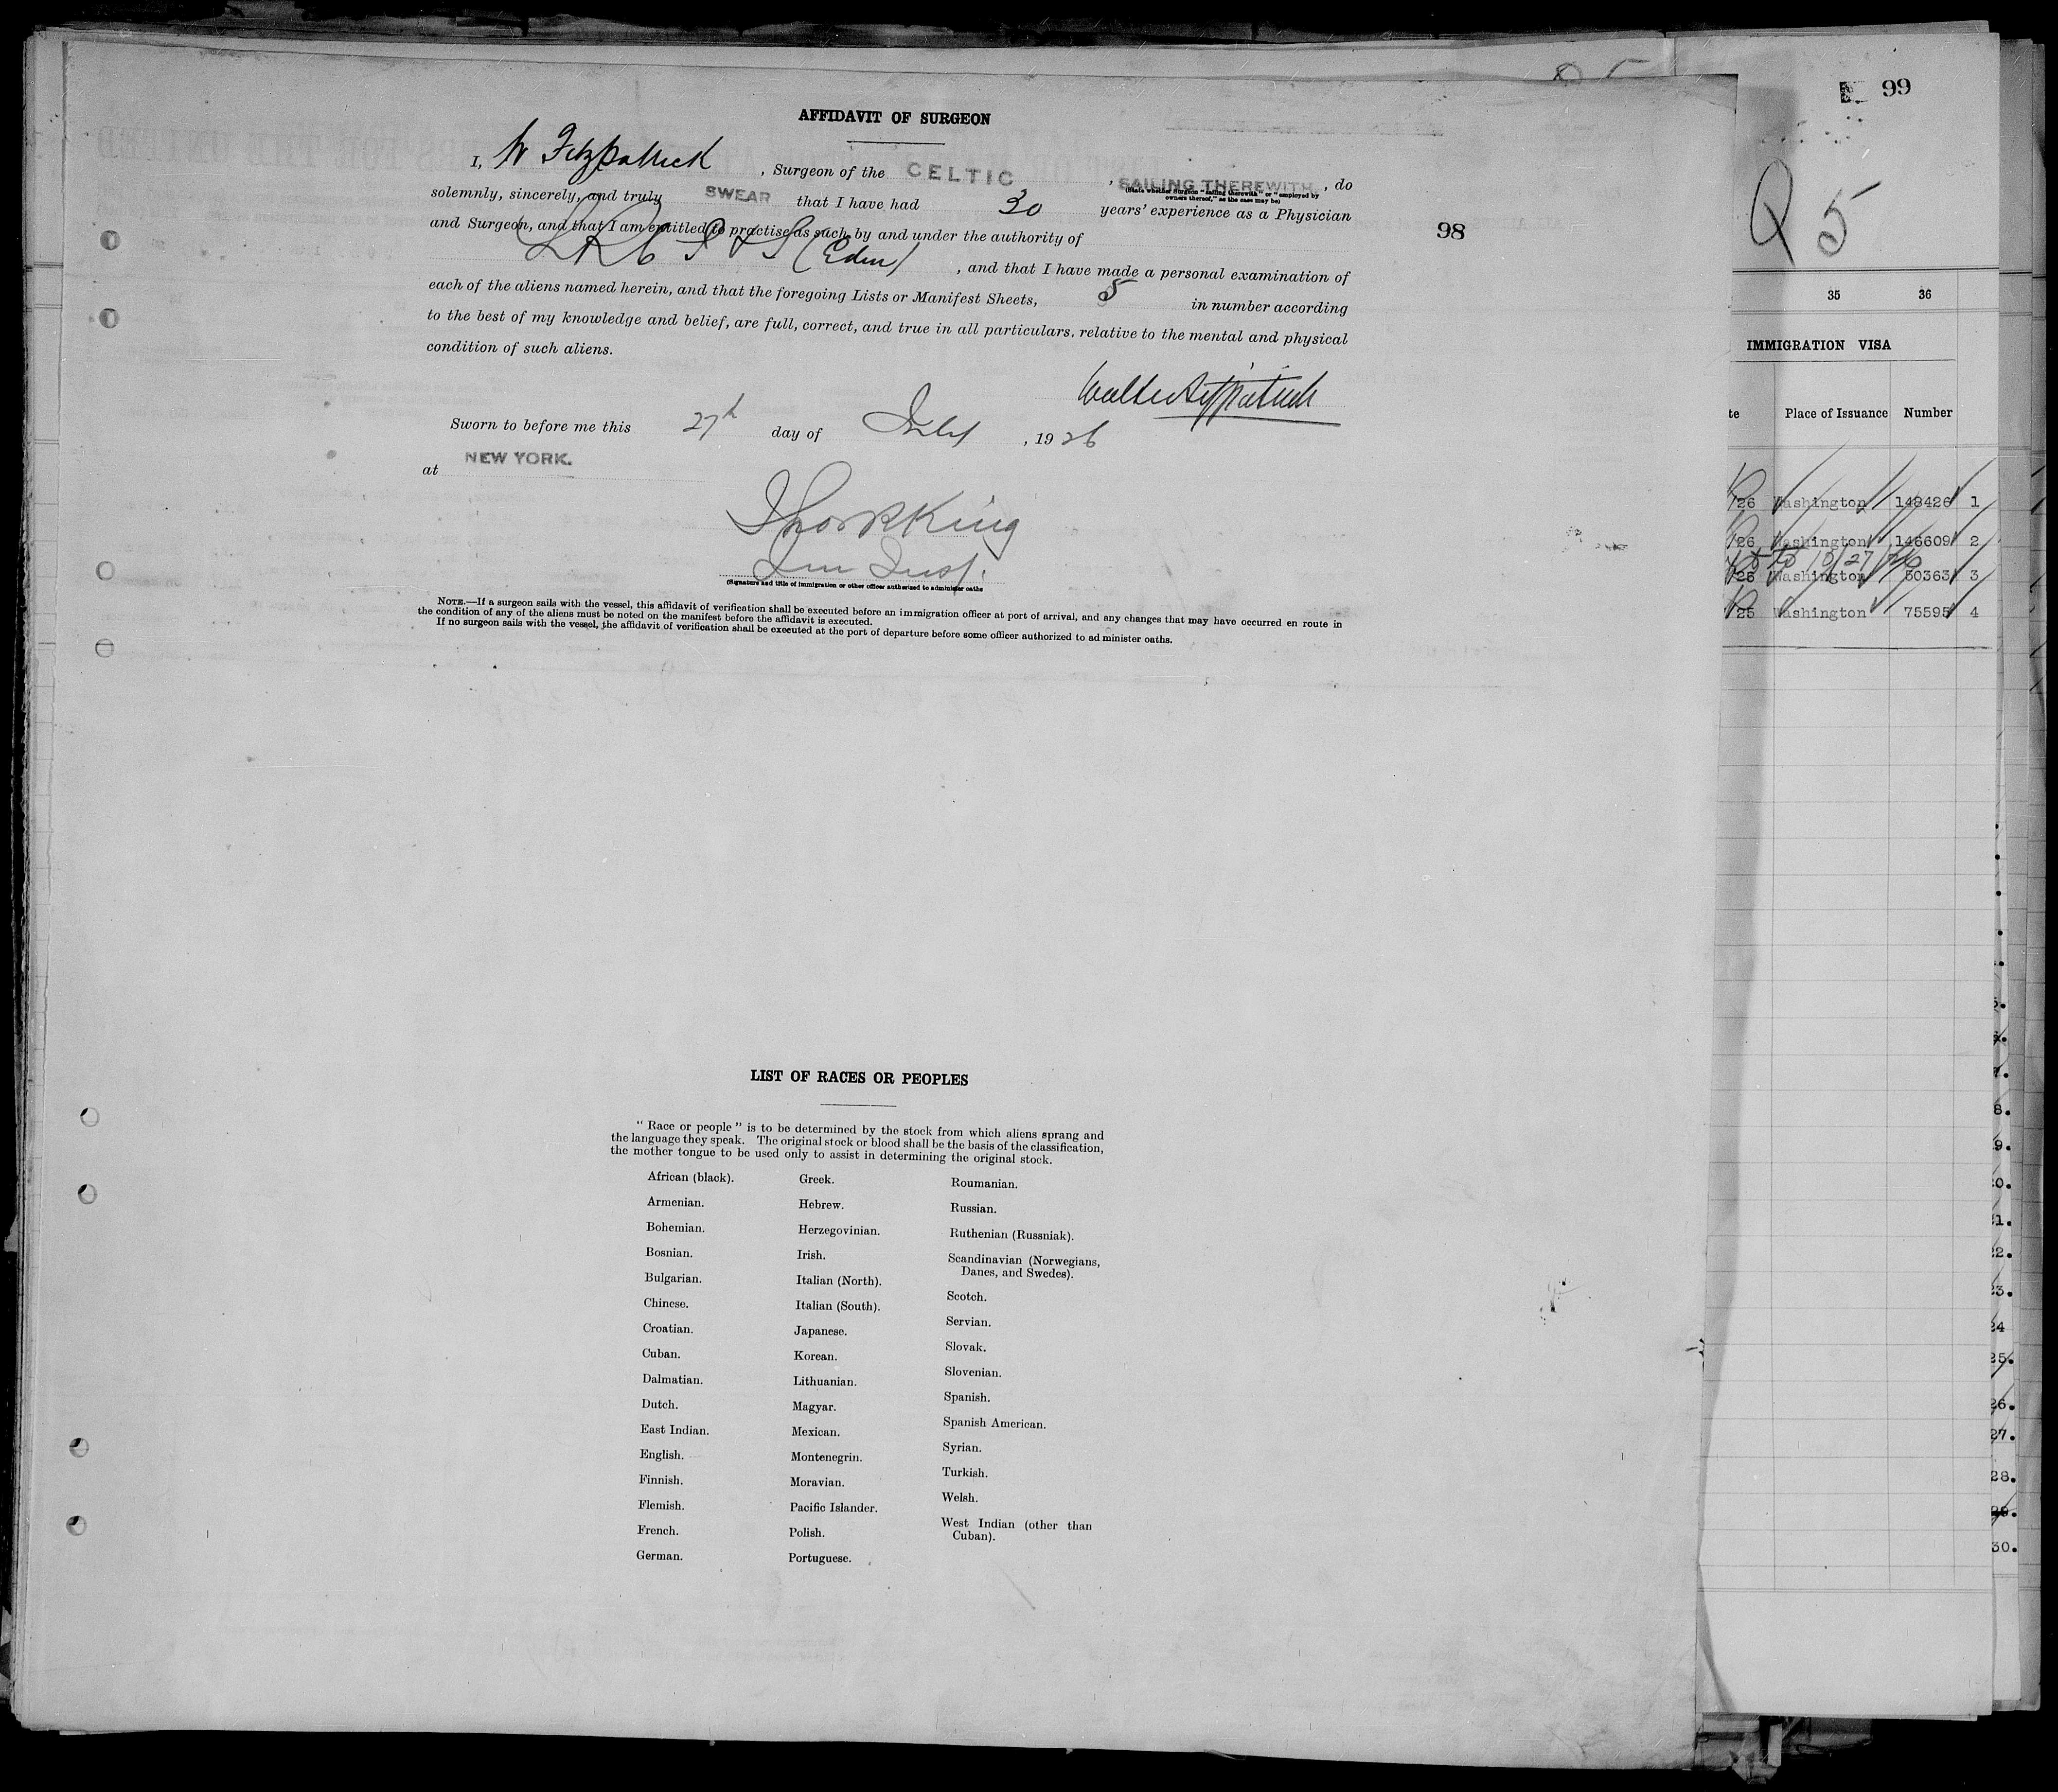 AFFIDAVIT OF SURGEON
I, W Fitzpatrick, Surgeon of the CELTIC, SAILING THEREWITH, do
(State whether Surgeon "sailing therewith" or "employed by
owners thereof," as the case may be)
solemnly, sincerely, and truly SWEAR that I have had 30 years' experience as a Physician
and Surgeon, and that I am entitled to practise as such by and under the authority of
LRC P & S (Edin), and that I have made a personal examination of
each of the aliens named herein, and that the foregoing Lists or Manifest Sheets, 5 in number according
to the best of my knowledge and belief, are full, correct, and true in all particulars, relative to the mental and physical
condition of such aliens.
Walter Fitzpatrick
Sworn to before me this 27th day of July, 1926
at NEW YORK.
King
Imm Insp.
(Signature and title of immigration or other officer authorized to administer oaths
NOTE.—If a surgeon sails with the vessel, this affidavit of verification shall be executed before an immigration officer at port of arrival, and any changes that may have occurred en route in
the condition of any of the aliens must be noted on the manifest before the affidavit is executed.
If no surgeon sails with the vessel, the affidavit of verification shall be executed at the port of departure before some officer authorized to ad minister oaths.
98
LIST OF RACES OR PEOPLES
" Race or people " is to be determined by the stock from which aliens sprang and
the language they speak. The original stock or blood shall be the basis of the classification,
the mother tongue to be used only to assist in determining the original stock.
African (black).
Armenian.
Bohemian.
Bosnian.
Bulgarian.
Chinese.
Croatian.
Cuban.
Dalmatian.
Dutch.
East Indian.
English.
Finnish.
Flemish.
French.
German.
Greek.
Hebrew.
Herzegovinian.
Irish.
Italian (North).
Italian (South).
Japanese.
Korean.
Lithuanian.
Magyar.
Mexican.
Montenegrin.
Moravian.
Pacific Islander.
Polish.
Portuguese.
Roumanian.
Russian.
Ruthenian (Russniak).
Scandinavian (Norwegians,
Danes, and Swedes).
Scotch.
Servian.
Slovak.
Slovenian.
Spanish.
Spanish American.
Syrian.
Turkish.
Welsh.
West Indian (other than
Cuban).
99
Q 5
35 36
IMMIGRATION VISA
te Place of Issuance Number
/26 Washington 148426 1
/26 Washington 146609 2
/25 Washington 50363 3
/25 Washington 75595 4
8.
9.
23.
24
25.
26.
27.
28.
29.
30.